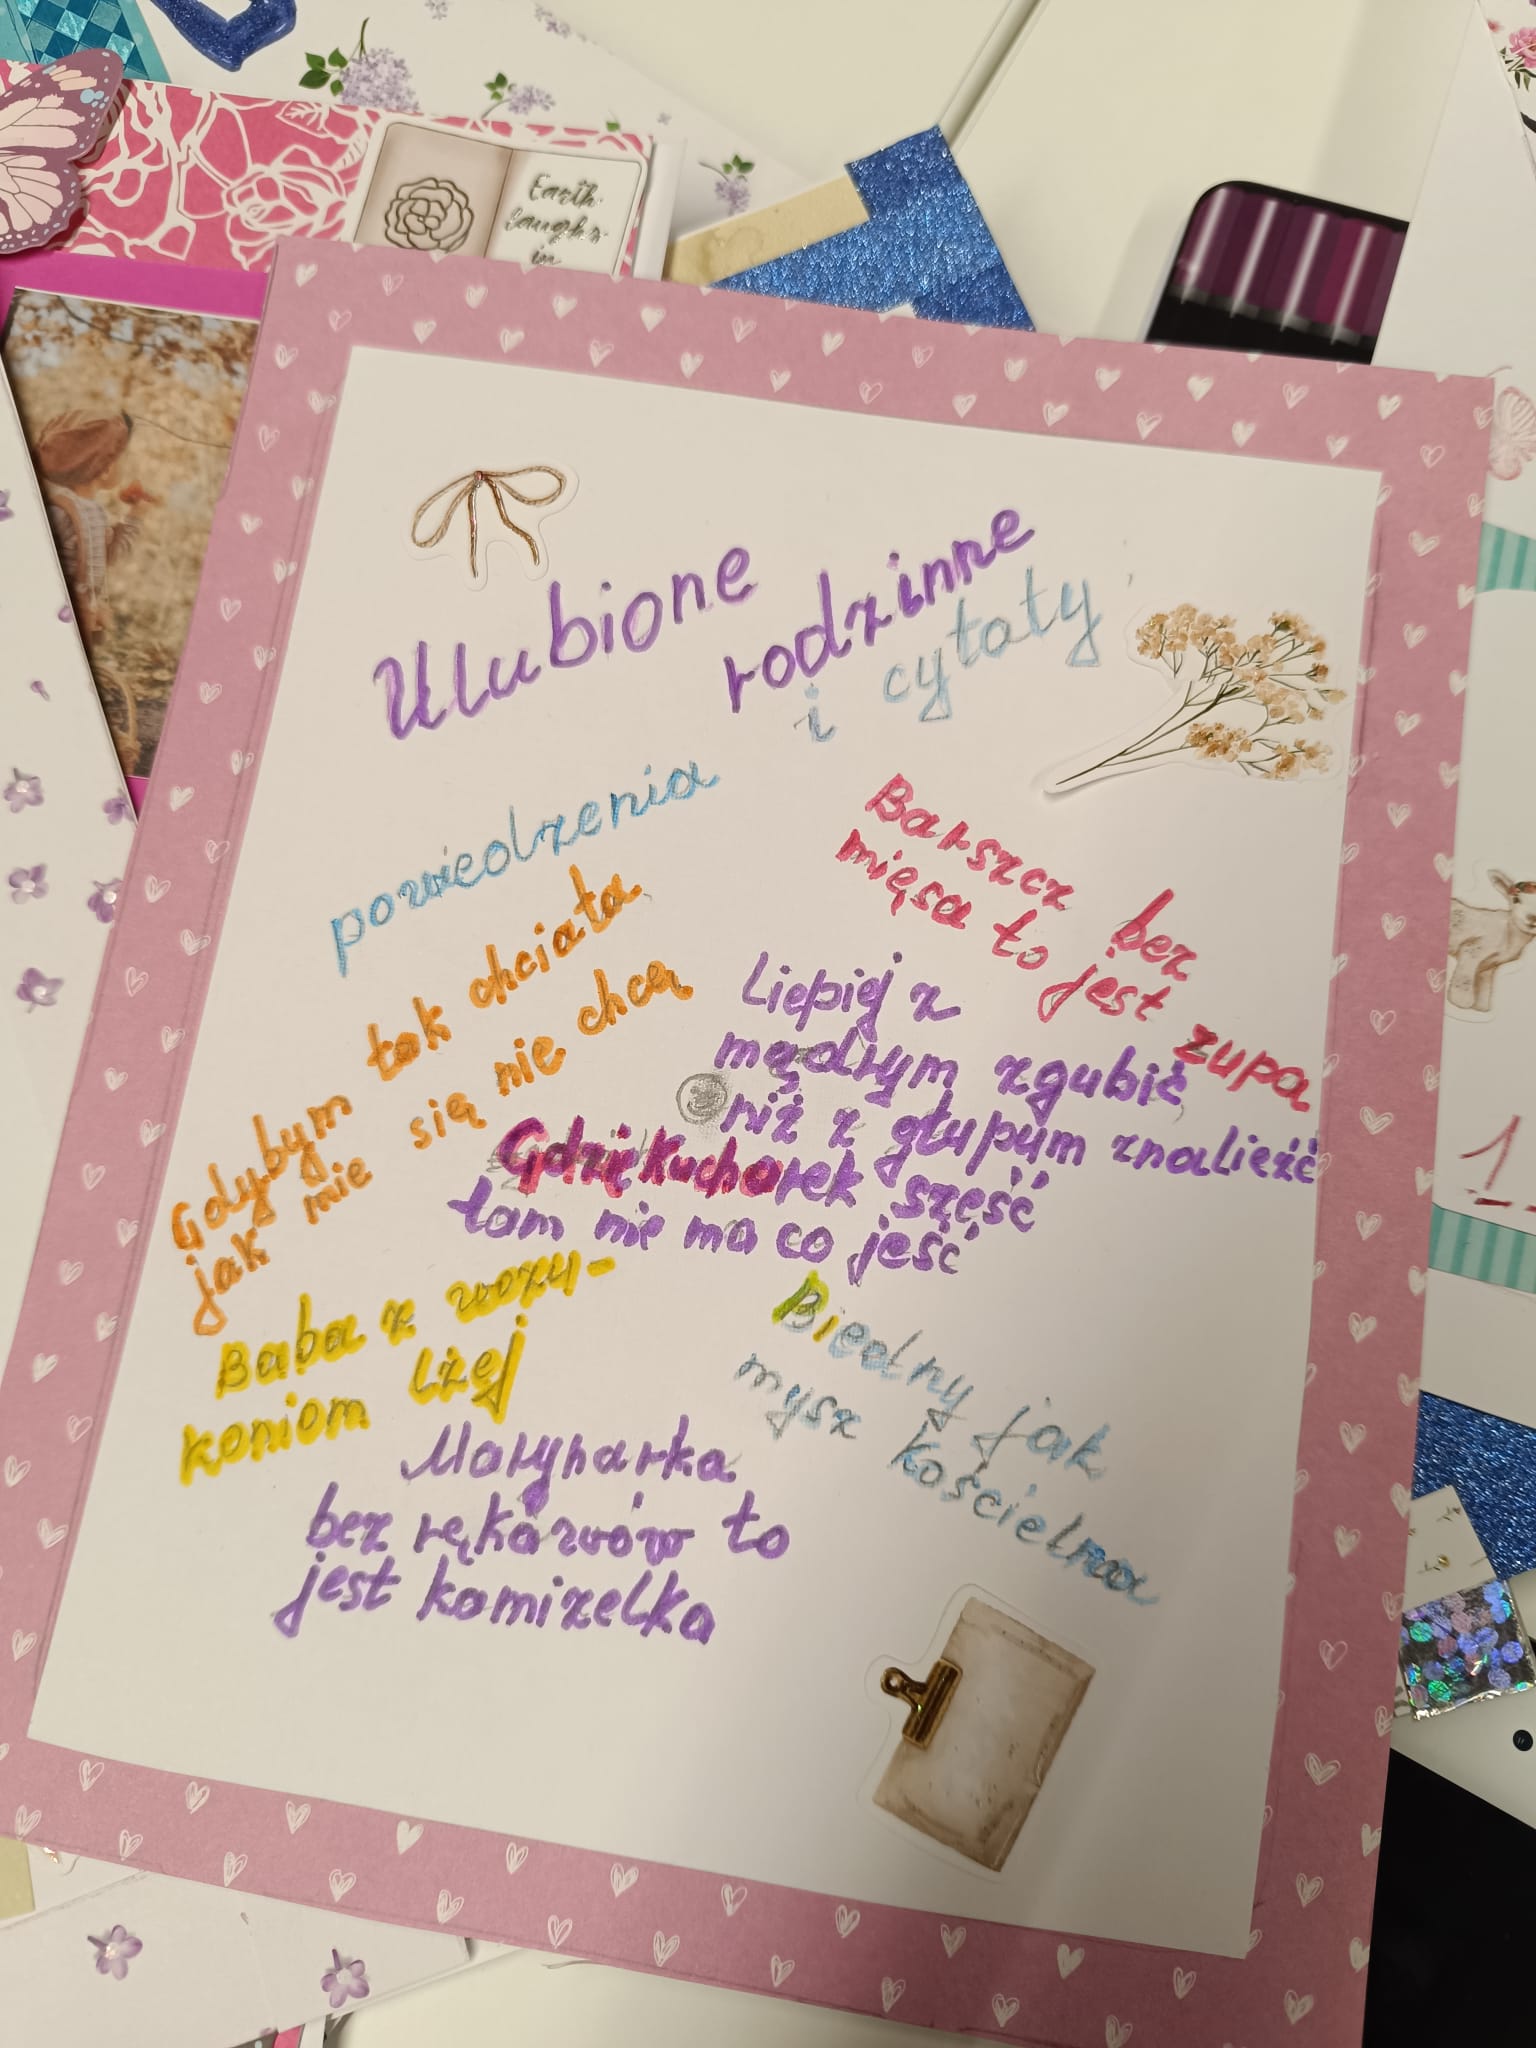 Earth
laughs
in
Ulubione
rodzinne
powiedzenia
i cytaty
Gdybym tak chciała
jak mie się nie chcę
Barszcz bez
mięsa to jest zupa
Liepiej z
mądrym zgubić
niż z głupum znalieźć
Gdzię kucharek szęść
tam nie ma co jeść
Baba z wozu-
koniom lżej
Biedny jak
mysz kościelna
Marynarka
bez rękawów to
jest kamizelka
1